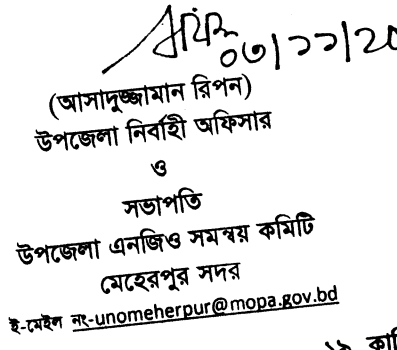 ০৩|১১|২০
(আসাদুজ্জামান রিপন)
উপজেলা নির্বাহী অফিসার
ও
সভাপতি
উপজেলা এনজিও সমন্বয় কমিটি
মেহেরপুর সদর
ই-মেইল নং-unomeherpur@mopa.gov.bd